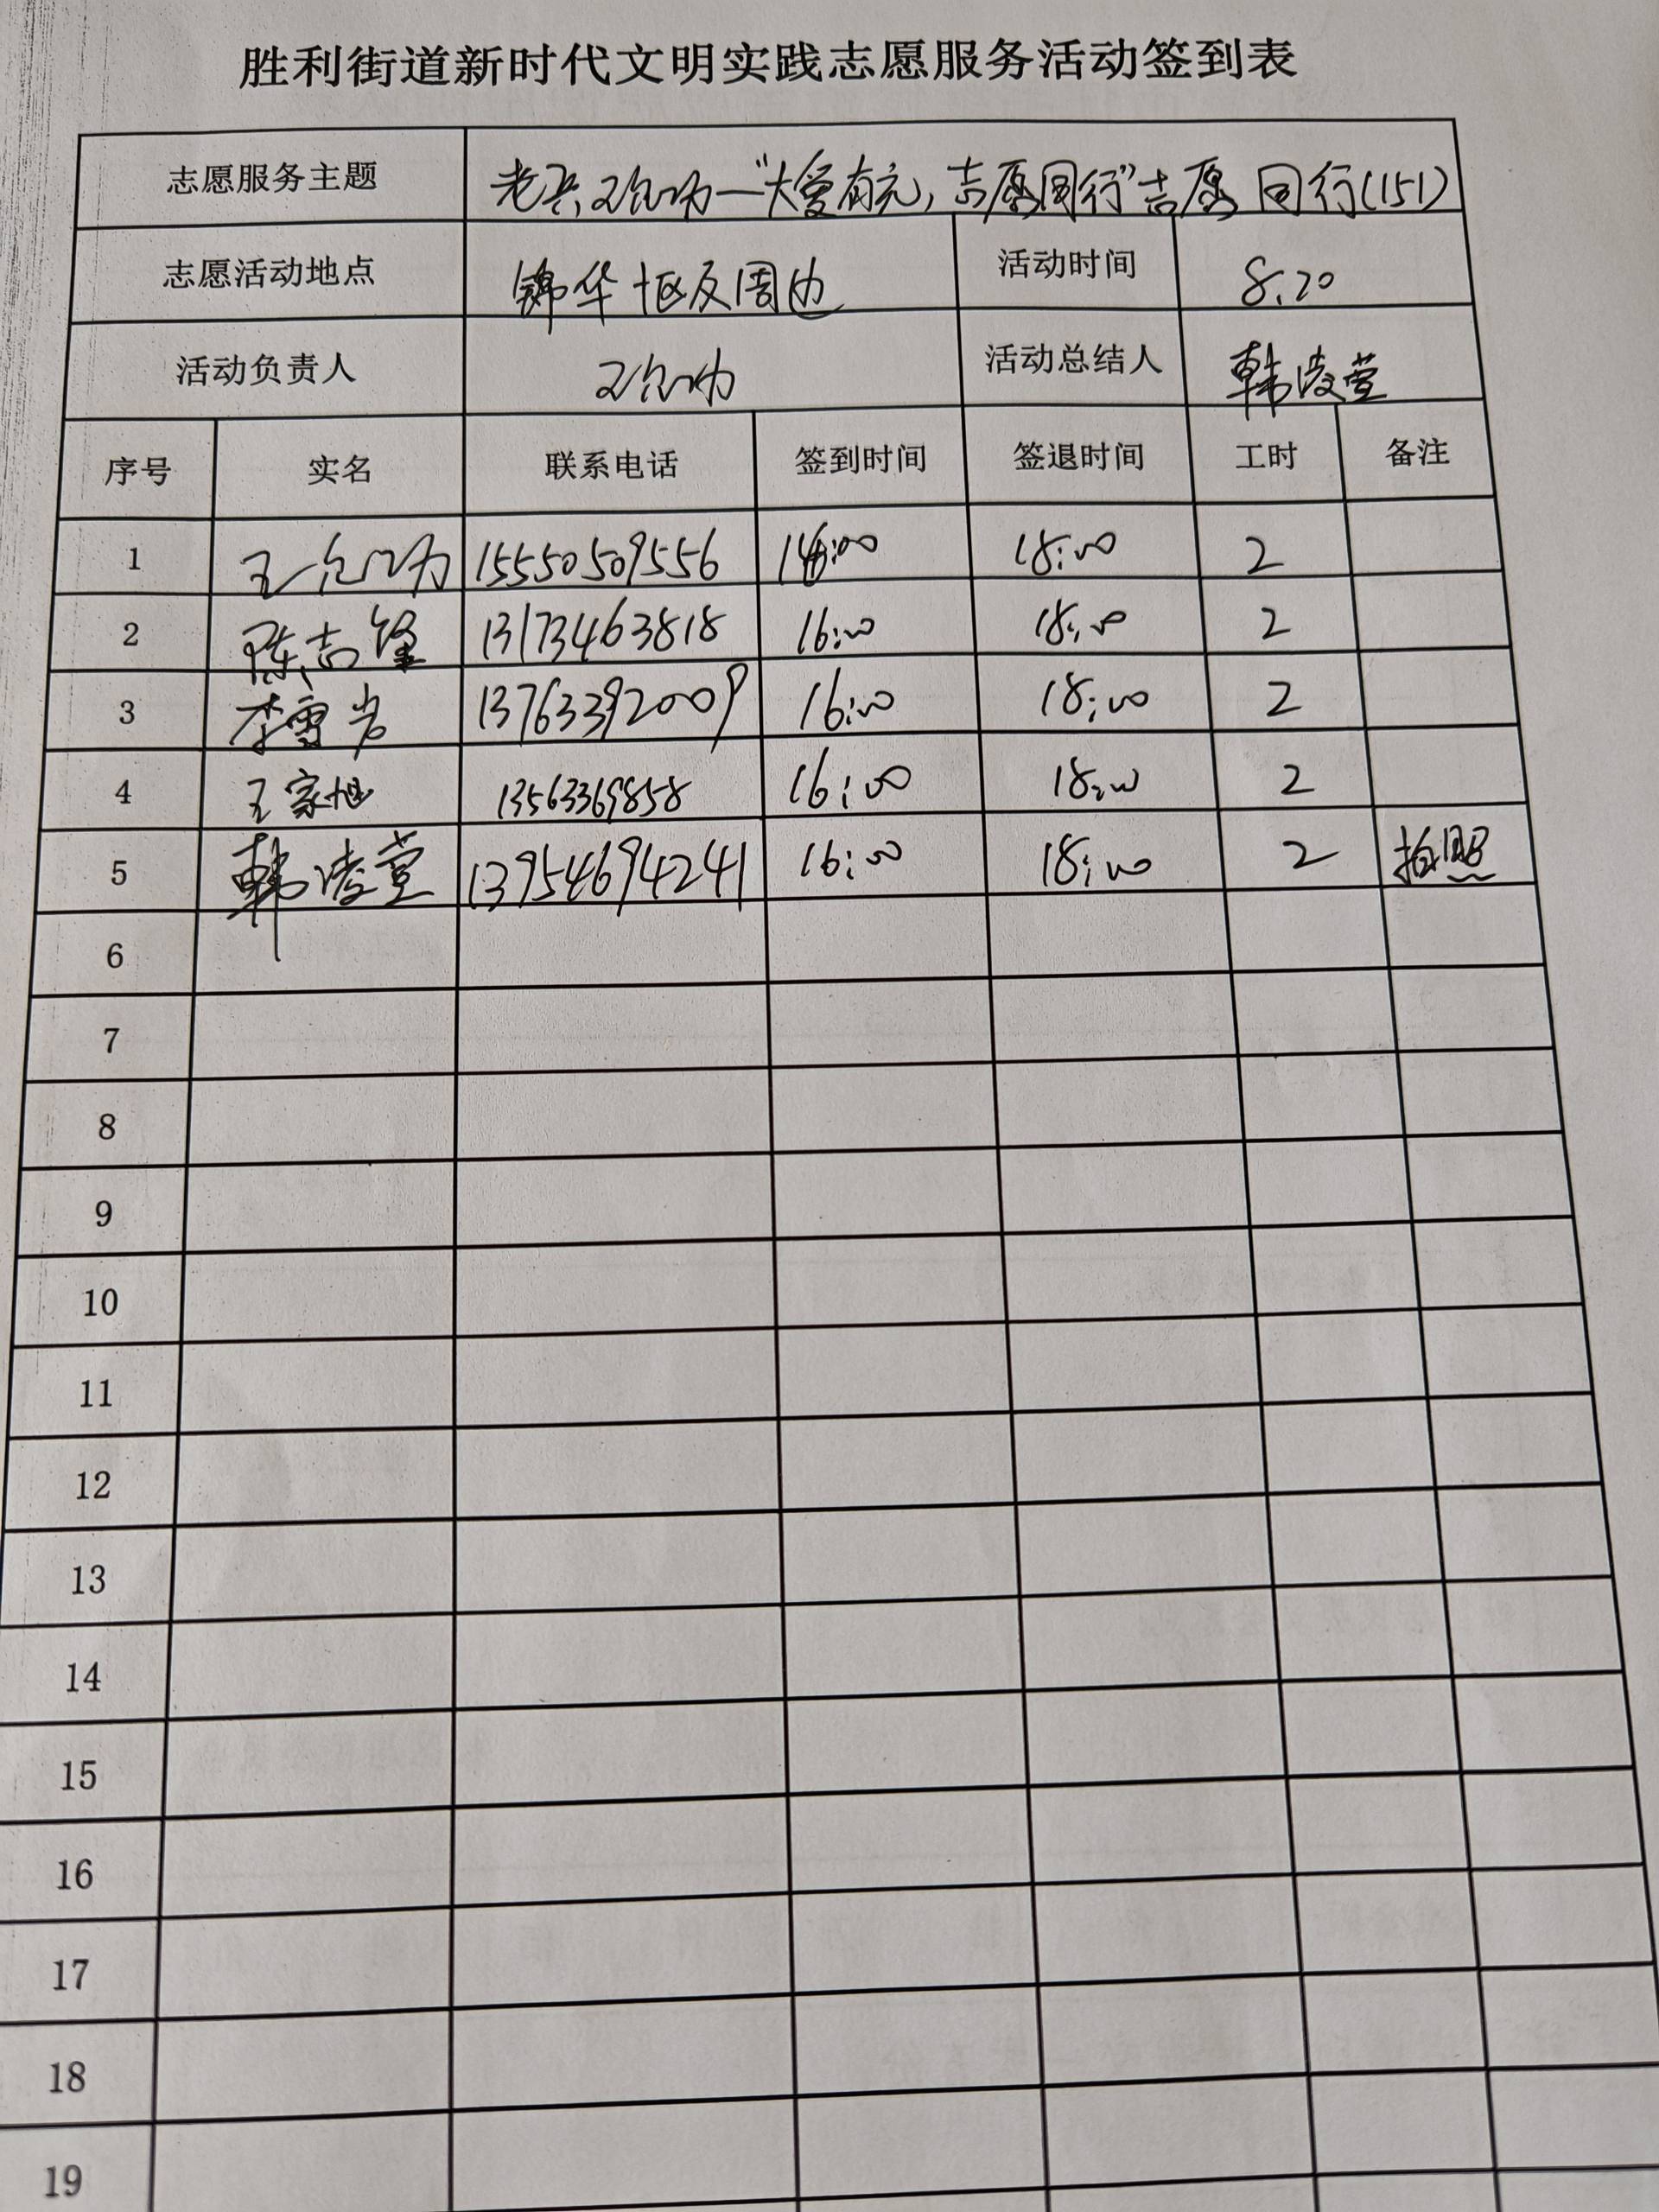 胜利街道新时代文明实践志愿服务活动签到表
志愿服务主题 老兵 —"大爱有元，志愿同行"志愿 同行(151)
志愿活动地点 锦华 区及周边 活动时间 8.20
活动负责人 活动总结人 韩凌萱
序号 实名 联系电话 签到时间 签退时间 工时 备注
1 王 15550509556 16:00 18:00 2
2 陈志锋 13173463818 16:00 18:00 2
3 李雪岩 13763392009 16:00 18:00 2
4 王家旭 13563369858 16:00 18:00 2
5 韩凌萱 13954694241 16:00 18:00 2 拍照
6
7
8
9
10
11
12
13
14
15
16
17
18
19